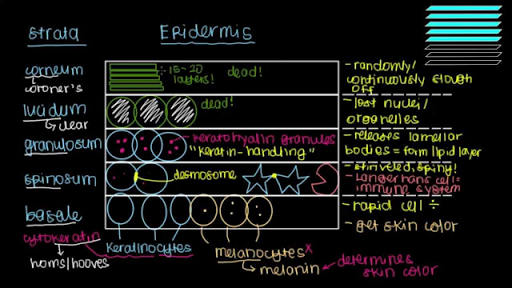 strata
Epidermis
corneum
coroner's
15-20
layers!
dead!
-randomly/
continuously slough
off
lucidum
clear
dead!
-lost nuclei/
organelles
granulosum
keratohyalin granules
"keratin-handling"
-releases lamellar
bodies = form lipid layer
spinosum
desmosome
-shriveled, spiny!
-Langerhans cell=
immune system
basale
-rapid cell ÷
-get skin color
cytokeratin
horns/hooves
keratinocytes
melanocytes x
melanin
determines
skin color